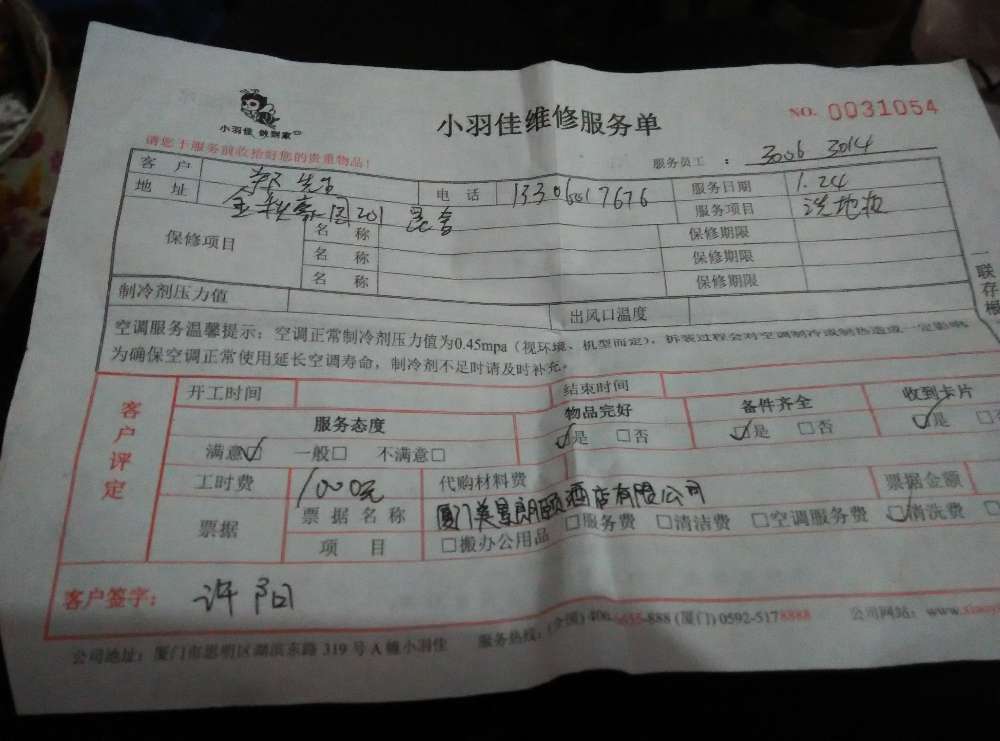 小羽佳 做到家
小羽佳维修服务单
NO. 0031054
请您于服务前收拾好您的贵重物品!
服务员工 : 3006 3014
客 户 先生 电 话 服务日期 1.24
地 址 201 服务项目 洗地板
保修项目 名 称 保修期限
名 称 保修期限
名 称 保修期限
一联存根
制冷剂压力值 出风口温度
空调服务温馨提示:空调正常制冷剂压力值为0.45mpa(视环境、机型而定),拆装过程会对空调制冷或制热造成一定影响
为确保空调正常使用延长空调寿命,制冷剂不足时请及时补充。
客户评定
开工时间 结束时间
服务态度 物品完好 备件齐全 收到卡片
满意☑ 一般□ 不满意□ ☑是 □否 ☑是 □否 ☑是
工时费 1000元 代购材料费 票据金额
票据 票据名称 厦门美景朗颐酒店有限公司
项 目 □搬办公用品 □服务费 □清洁费 □空调服务费 ☑清洗费
客户签字: 许阳
公司地址:厦门市思明区湖滨东路 319 号 A 幢小羽佳 服务热线:(全国) 400-6655-888 (厦门) 0592-5178888 公司网站:www.